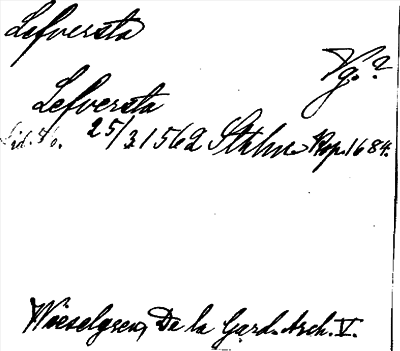 Lefversta
Vg.?
Lefversta
25/3 1562 Sthlm Kop. 1684.
Wieselgren, De la Gard. Arch. V.